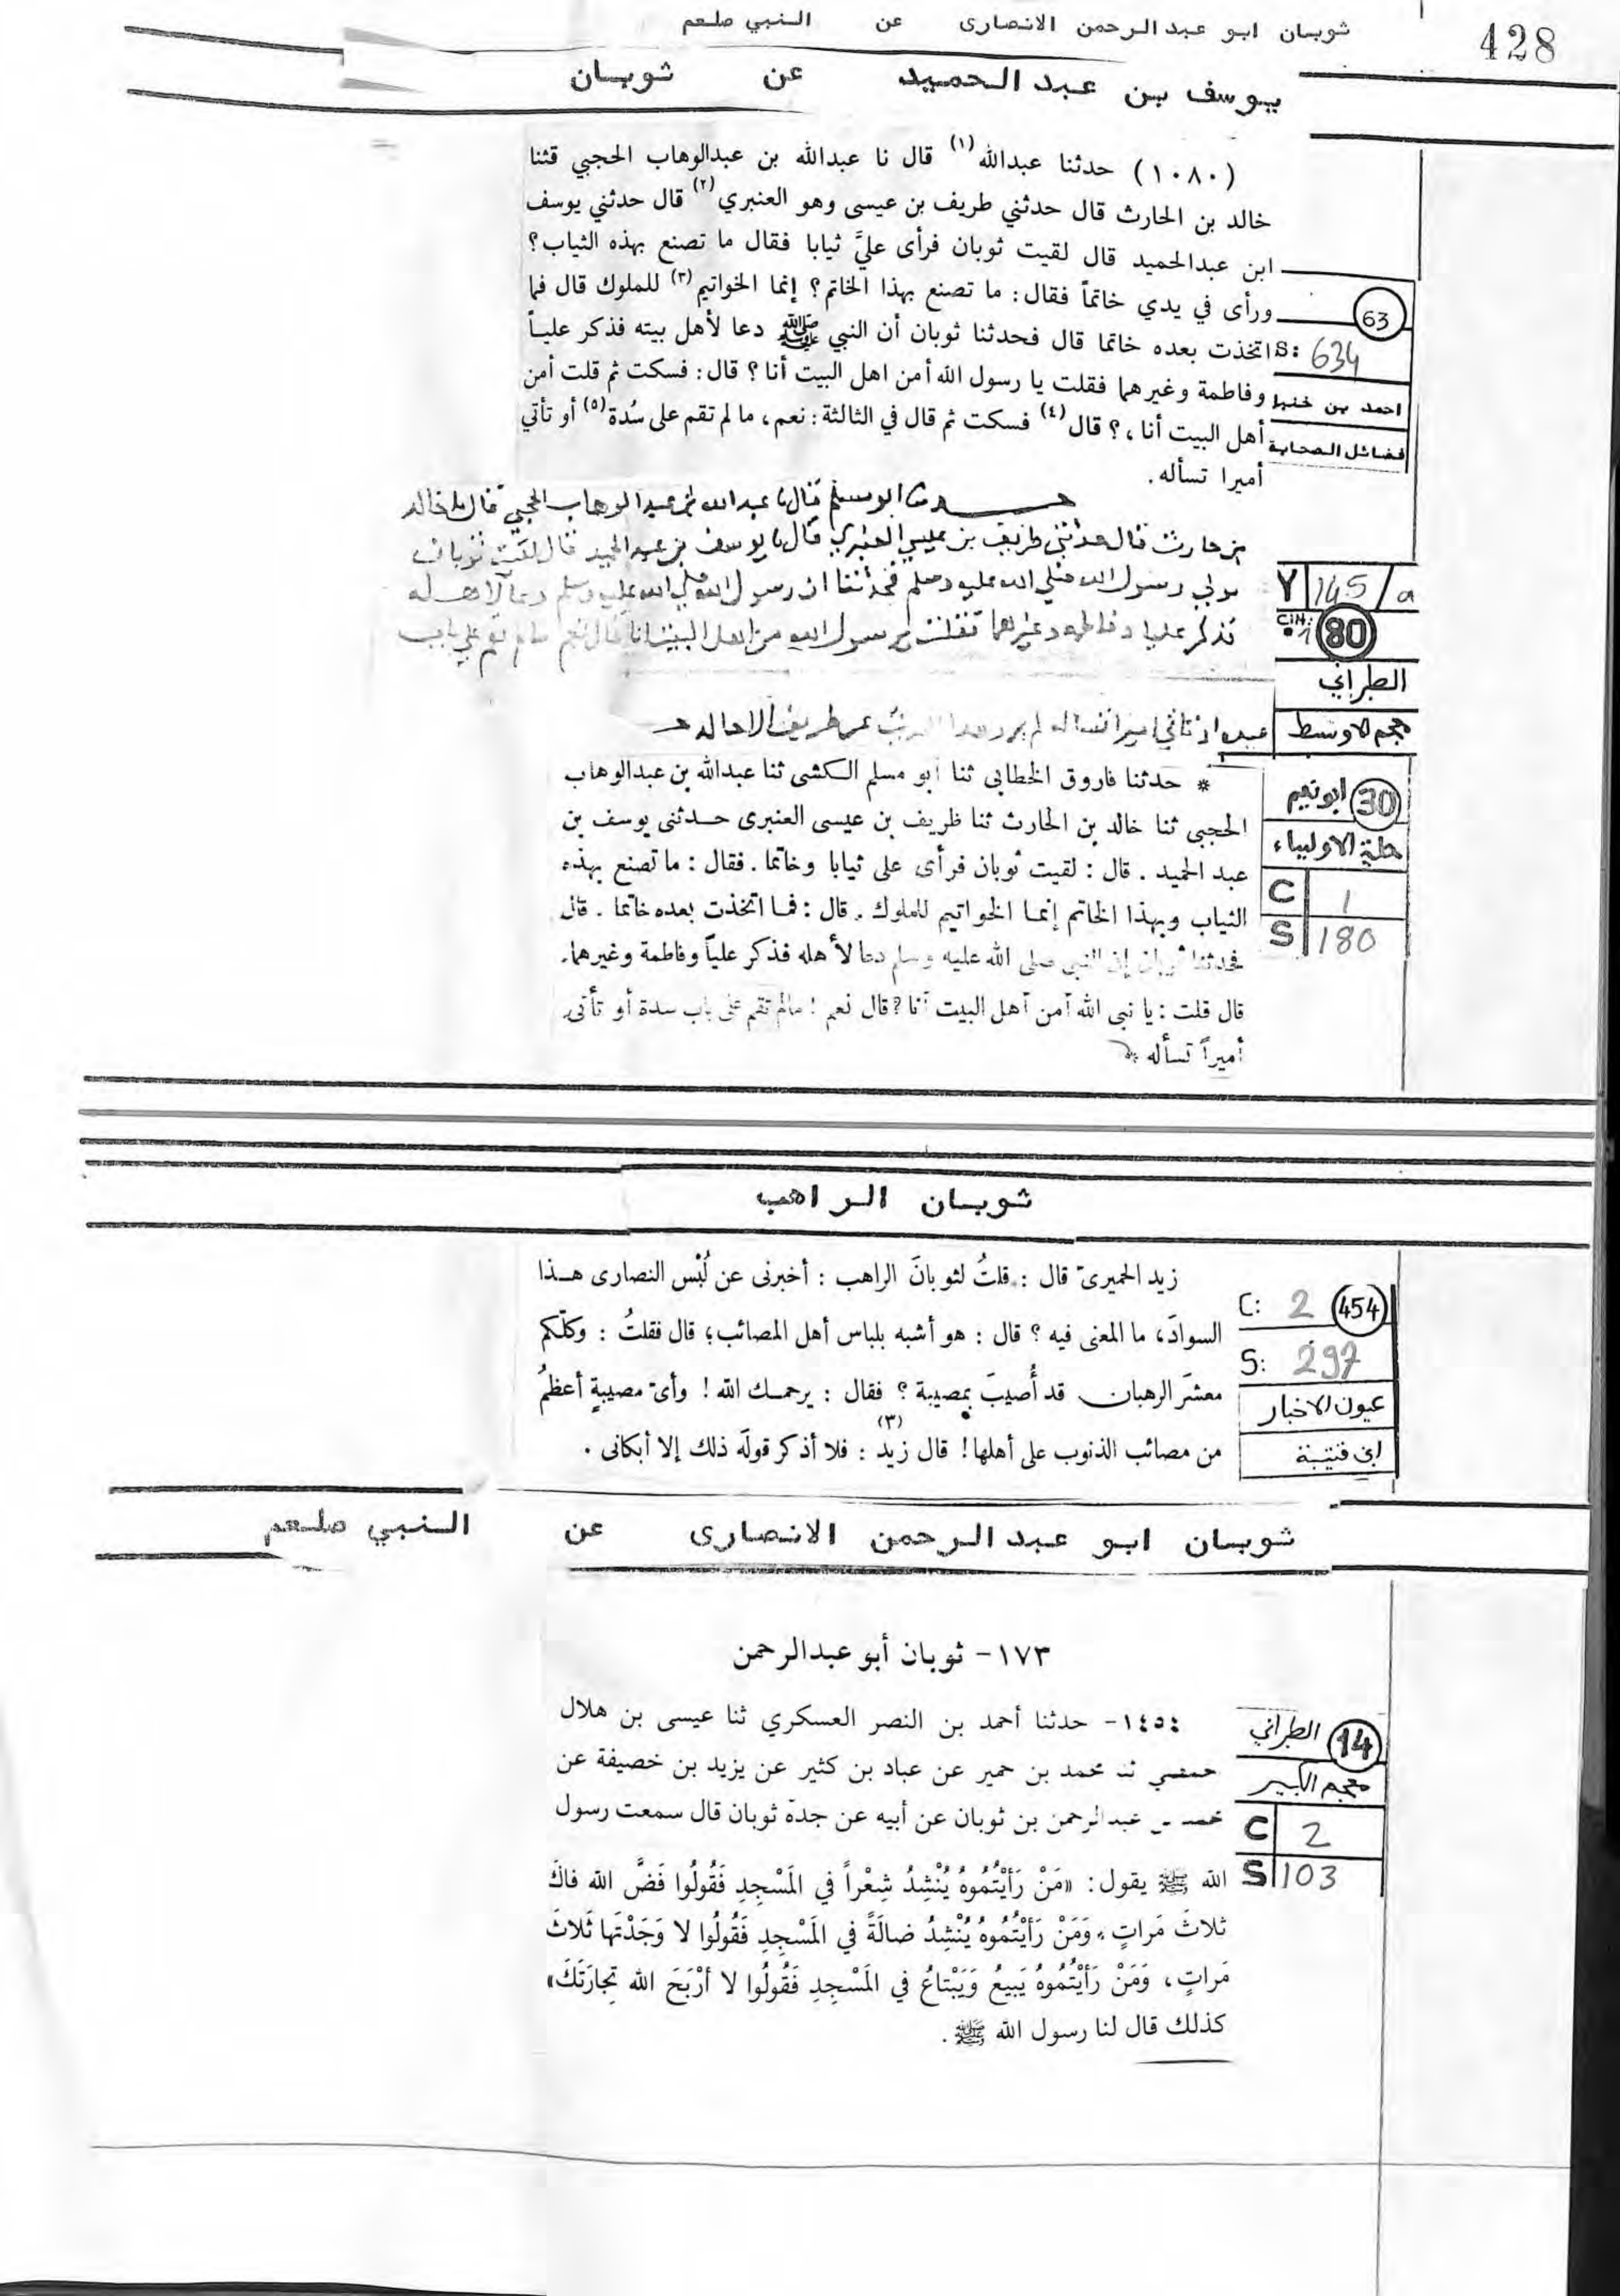 428
ثوبان ابو عبد الرحمن الانصارى عن النبي صلعم
يوسف بن عبد الحميد عن ثوبان
(١٠٨٠) حدثنا عبدالله(١) قال نا عبدالله بن عبدالوهاب الحجبي قثنا
خالد بن الحارث قال حدثني طريف بن عيسى وهو العنبري(٢) قال حدثني يوسف
ابن عبدالحميد قال لقيت ثوبان فرأى عليَّ ثيابا فقال ما تصنع بهذه الثياب؟
ورأى في يدي خاتماً فقال: ما تصنع بهذا الخاتم؟ إنما الخواتيم(٣) للملوك قال فما
اتخذت بعده خاتما قال فحدثنا ثوبان أن النبي ﷺ دعا لأهل بيته فذكر علياً
وفاطمة وغيرهما فقلت يا رسول الله أمن اهل البيت أنا؟ قال: فسكت ثم قلت أمن
أهل البيت أنا،؟ قال(٤) فسكت ثم قال في الثالثة: نعم، ما لم تقم على سُدة(٥) أو تأتي
أميرا تسأله.
63
S: 634
احمد بن حنبل
فضائل الصحابة
ابو مسلم قال نا عبد الله بن عبد الوهاب الحجبي قال نا خالد
بن حارث قال حدثني طريف بن عيسي العنبري قال نا يوسف بن عبد الحميد قال لقيت ثوبان
مولي رسول الله صلي الله عليه وسلم فحدثنا ان رسول الله صلي الله عليه وسلم دعا لاهله
فذكر عليا وفاطمة وغيرهما فقلت يا رسول الله من اهل البيت انا قال نعم ما لم تقم علي باب
او تاتي اميرا تساله لم يرو هذا الحديث عن طريف الا خالد
Y 145/a
80
الطبراني
معجم الاوسط
* حدثنا فاروق الخطابى ثنا أبو مسلم الكشى ثنا عبدالله بن عبدالوهاب
الحجبى ثنا خالد بن الحارث ثنا طريف بن عيسى العنبرى حدثنى يوسف بن
عبد الحميد. قال: لقيت ثوبان فرأى على ثيابا وخاتما. فقال: ما تصنع بهذه
الثياب وبهذا الخاتم إنما الخواتيم للملوك. قال: فما اتخذت بعده خاتما. قال
فحدثنا ثوبان إن النبى صلى الله عليه وسلم دعا لأهله فذكر علياً وفاطمة وغيرهما.
قال قلت: يا نبى الله أمن أهل البيت أنا؟ قال نعم! مالم تقم على باب سدة أو تأتى
أميراً تسأله *
30 ابو نعيم
حلية الاولياء
C 1
S 180
ثوبان الراهب
زيد الحميرىّ قال: قلتُ لثوبانَ الراهب: أخبرنى عن لُبْس النصارى هذا
السوادَ، ما المعنى فيه؟ قال: هو أشبه بلباس أهل المصائب؛ قال فقلتُ: وكلّكم
معشرَ الرهبان قد أُصيبَ بمصيبة؟ فقال: يرحمك الله! وأىّ مصيبةٍ أعظمُ
من مصائب الذنوب على أهلها! قال زيد(٣): فلا أذكر قولَه ذلك إلا أبكانى.
454
C: 2
S: 297
عيون الاخبار
ابن قتيبة
ثوبان ابو عبد الرحمن الانصارى عن النبي صلعم
١٧٣- ثوبان أبو عبدالرحمن
١٤٥٤- حدثنا أحمد بن النصر العسكري ثنا عيسى بن هلال
محمد بن حمير عن عباد بن كثير عن يزيد بن خصيفة عن
عبدالرحمن بن ثوبان عن أبيه عن جدة ثوبان قال سمعت رسول
الله ﷺ يقول: «مَنْ رَأَيْتُمُوهُ يُنْشِدُ شِعْراً في المَسْجِدِ فَقُولُوا فَضَّ الله فاكَ
ثلاثَ مَراتٍ، وَمَنْ رَأَيْتُمُوهُ يُنْشِدُ ضالَةً في المَسْجِدِ فَقُولُوا لا وَجَدْتَها ثَلاثَ
مَراتٍ، وَمَنْ رَأَيْتُمُوهُ يَبيعُ وَيَبْتاعُ في المَسْجِدِ فَقُولُوا لا أَرْبَحَ الله تِجارَتَكَ»
كذلك قال لنا رسول الله ﷺ.
14 الطبراني
معجم الكبير
C 2
S 103